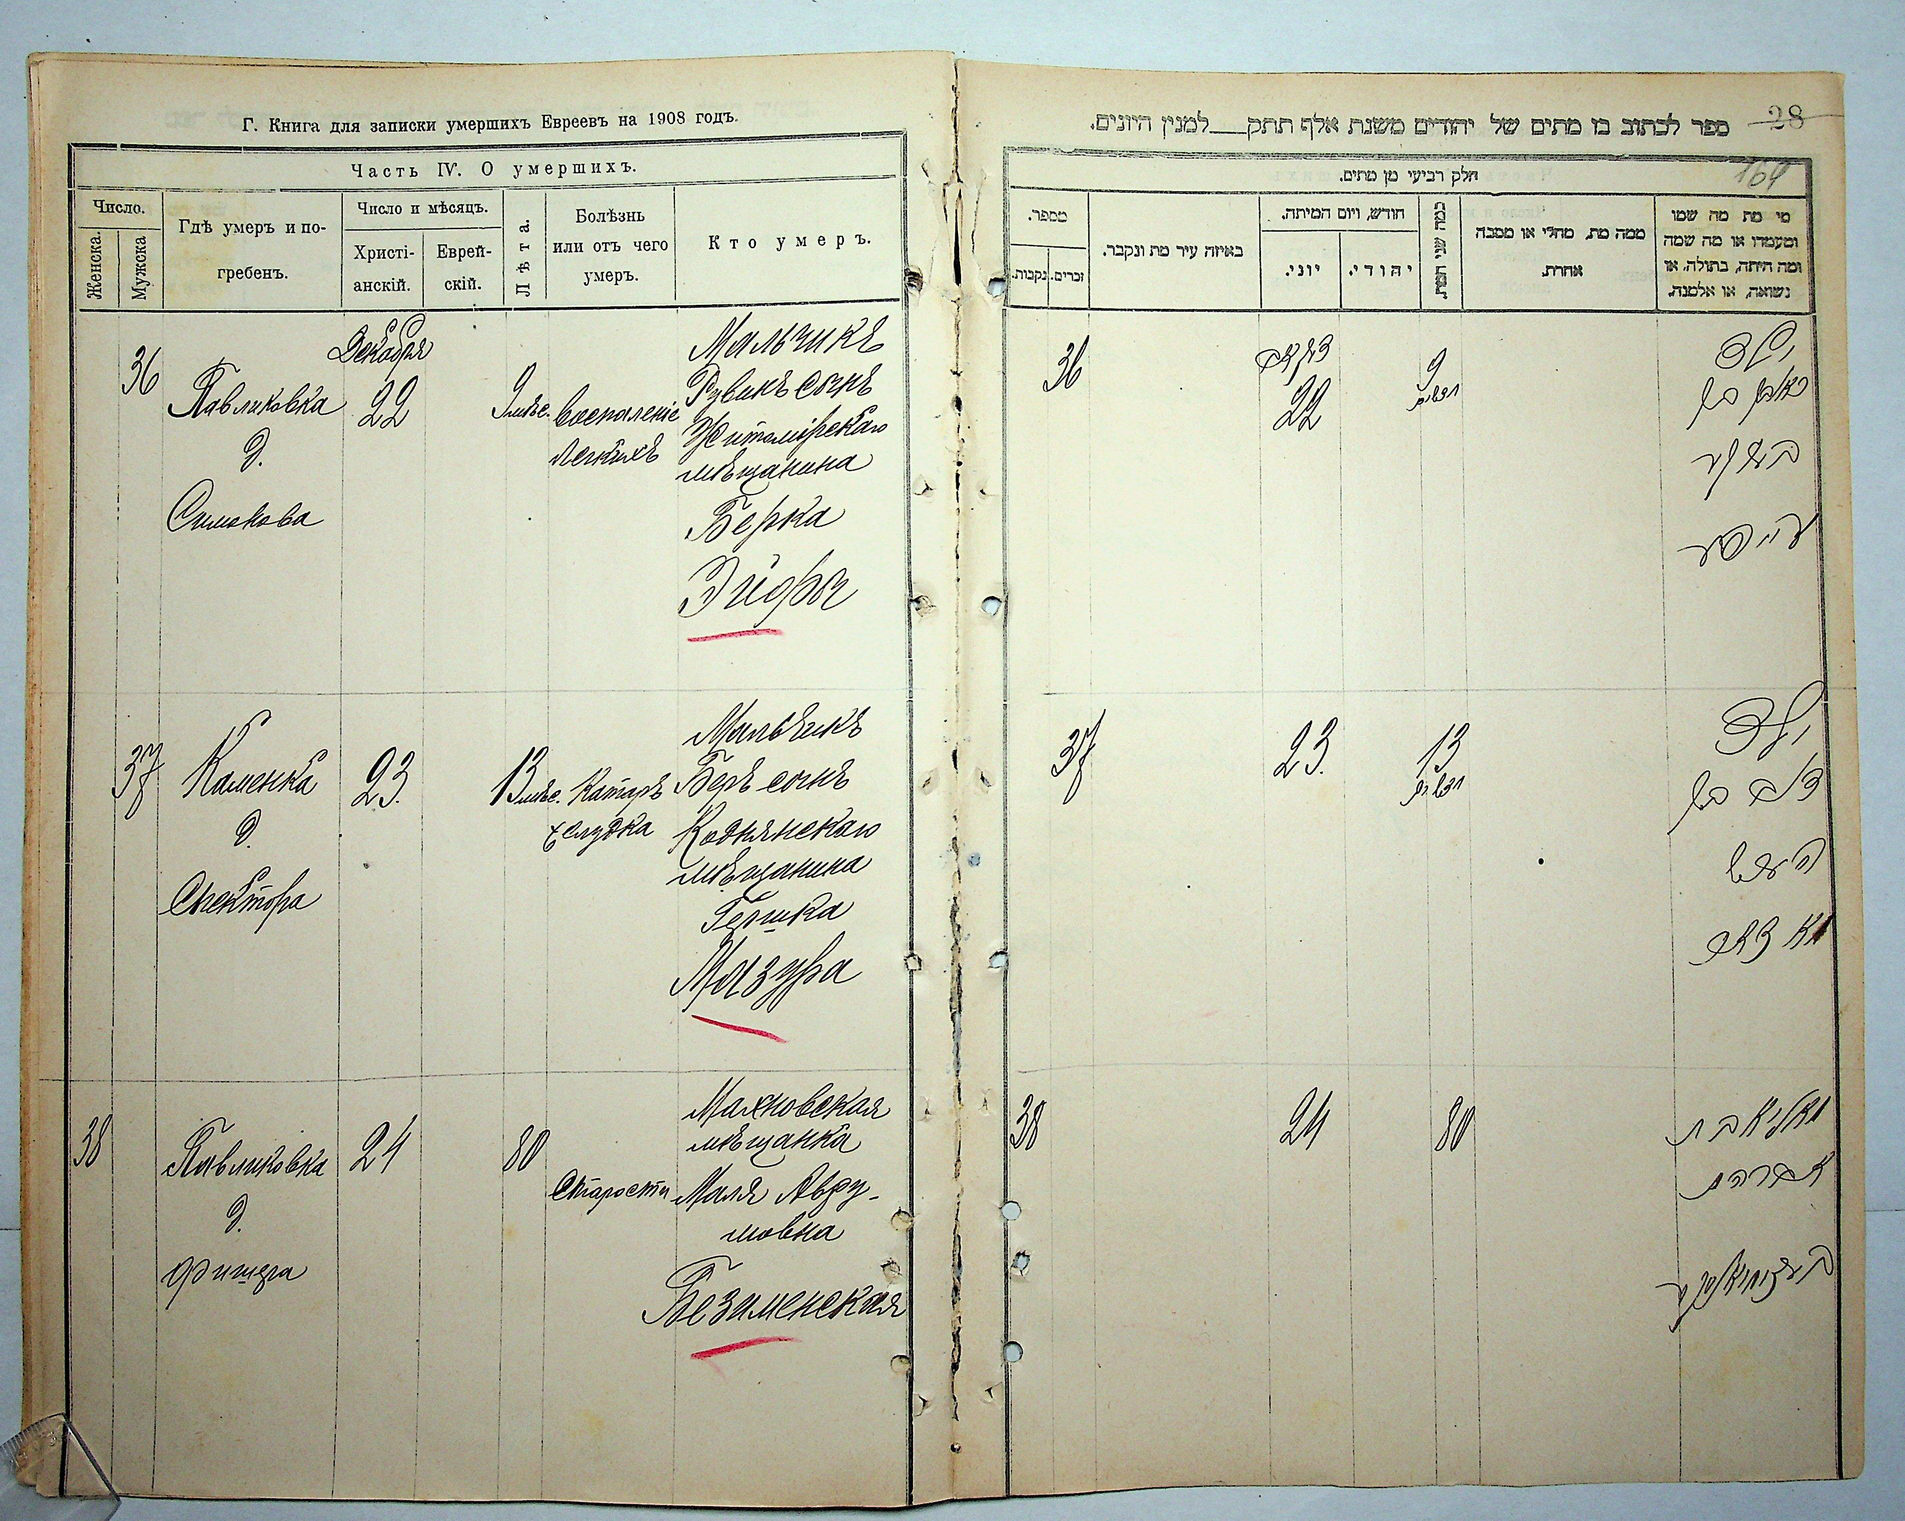 Г. Книга для записки умершихъ Евреевъ на 1908 годъ.
Часть IV. О умершихъ.
Число.
Женска.
Мужска
Гдѣ умеръ и по-
гребенъ.
Число и мѣсяцъ.
Христі-
анскій.
Еврей-
скій.
Лѣта.
Болѣзнь
или отъ чего
умеръ.
Кто умеръ.
36
Павликовка
д.
Симонова
Декабря
22
9 мѣс.
Воспаленіе
легкихъ
Мальчикъ
Рувинъ сынъ
Житомірскаго
мѣщанина
Берка
37
Каменка
д.
Спектора
23.
13 мѣс.
Катаръ
желудка
Мальчикъ
Беръ сынъ
Коднянскаго
мѣщанина
Гершка
Мазура
38
Павликовка
д.
Фишера
24
80
Старости
Махновская
мѣщанка
Маля Авру-
мовна
Безименская
28
169
ספר לכתוב בו מתים של יהודים משנת אלף תתק___למנין היונים.
חלק רביעי מן מתים.
מי מת מה שמו
ומעמדו או מה שמה
ומה היתה, בתולה, או
נשואה, או אלמנה.
ממה מת, מחלי או מסבה
אחרת.
כמה שני המת.
חודש, ויום המיתה.
יהודי.
יוני.
באיזה עיר מת ונקבר.
מספר.
זכרים.
נקבות.
ילד
ראובן בן
בערקע
9
חדשים
דעקאב
22
36
ילד
דוב בן
הערש
מאזאר
13
חדשים
23.
37
אברהם
80
24
38